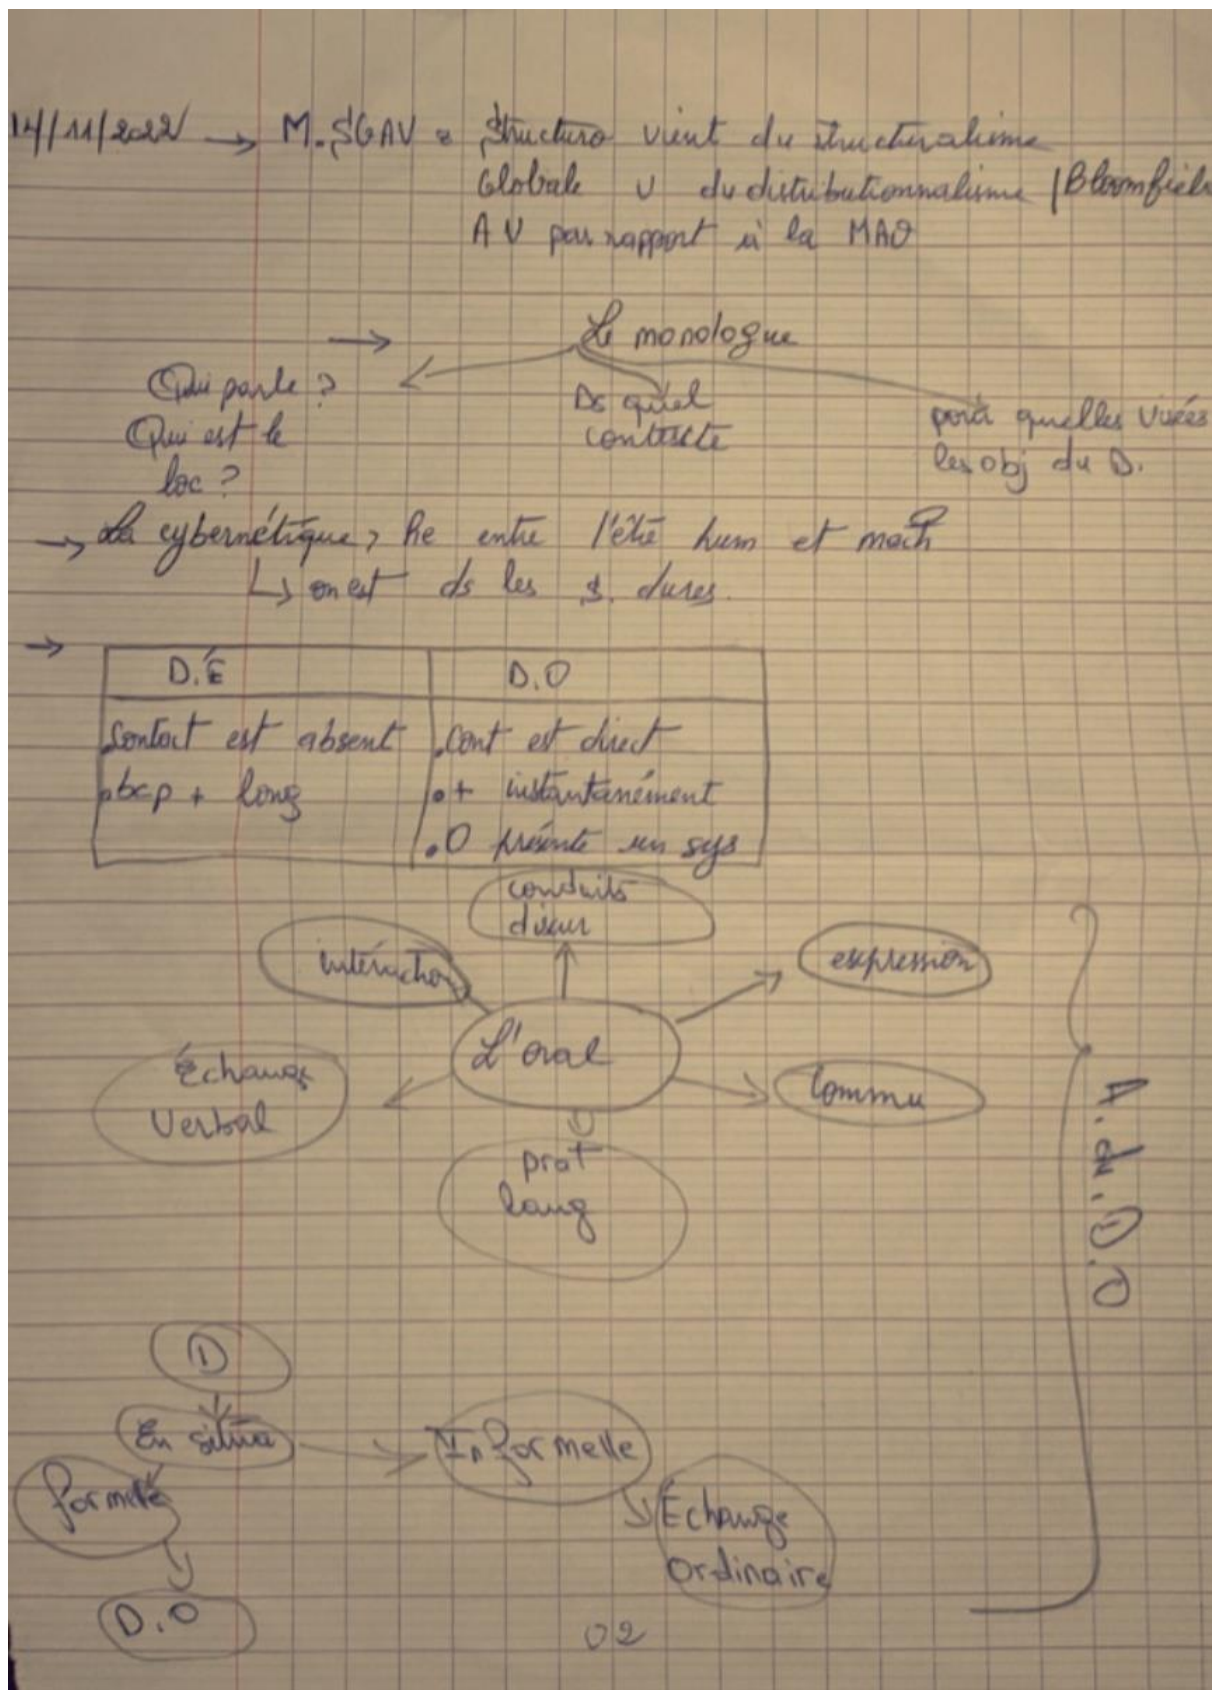 14/11/2022 → M.SGAV = Structuro vient du structuralisme
Globale v du distributionnalisme / Bloomfield
AV par rapport à la MAO
→ Le monologue
Qui parle ?
Qui est le
loc ?
Ds quel
contexte
quelles visées
les obj du D.
→ La cybernétique, Re entre l'être hum et mach
↳ on est ds les S. dures.
→
D.É
D.O
.Contact est absent
.cont est direct
.bcp + long
.+ instantanément
.O présente un sys
conduits
discur
interaction
expression
L'oral
Échange
Verbal
Commu
prat
lang
A.du.D.O
D
En situa
Informelle
formelle
Échange
ordinaire
D.O
02